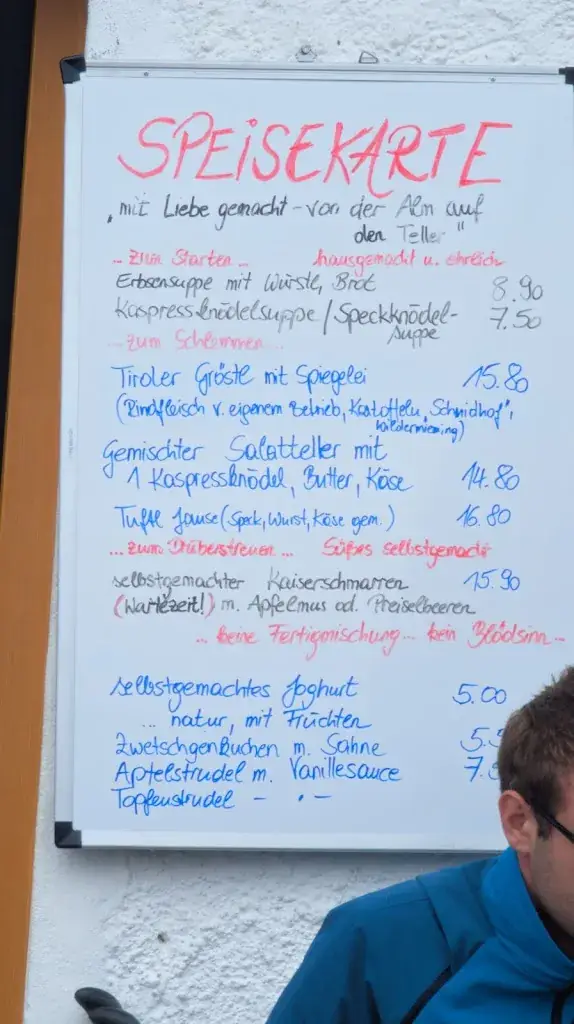 SPEiSEKARTE
„mit Liebe gemacht - von der Alm auf
den Teller"
... zum Starten ... hausgemacht u. ehrlich
Erbsensuppe mit Würstl, Brot 8.90
Kaspressknödelsuppe / Speckknödel- 7.50
suppe
... zum Schlemmen ...
Tiroler Gröstl mit Spiegelei 15.80
(Rindfleisch v. eigenem Betrieb, Kartoffeln „Schmidhof",
Wildermieming)
Gemischter Salatteller mit
1 Kaspressknödel, Butter, Käse 14.80
Tuftl Jause (Speck, Wurst, Käse gem.) 16.80
... zum Drüberstreuen ... Süßes selbstgemacht
selbstgemachter Kaiserschmarren 15.90
(Wartezeit!) m. Apfelmus od. Preiselbeeren
... keine Fertigmischung ... kein Blödsinn ...
selbstgemachtes Joghurt 5.00
... natur, mit Früchten
Zwetschgenkuchen m. Sahne 5.
Apfelstrudel m. Vanillesauce 7.
Topfenstrudel - " -